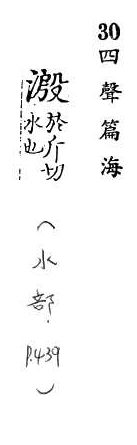 30四聲篇海
於斤切
水也
（水部.P.439）